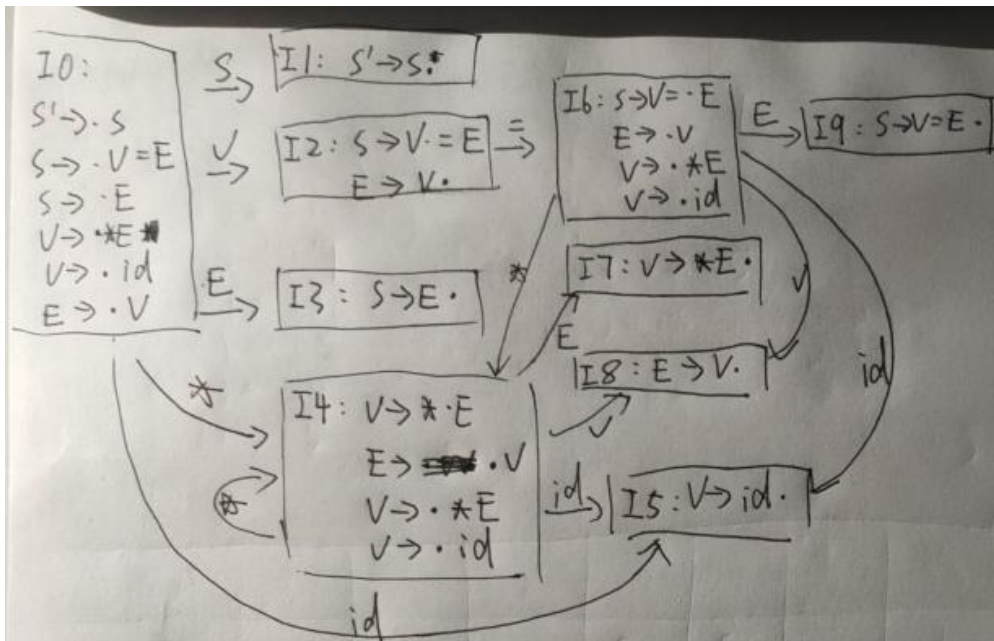 I0:
S'→·S
S→·V=E
S→·E
V→·*E
V→·id
E→·V
S
I1: S'→S·
V
I2: S→V·=E
E→V·
=
I6: S→V=·E
E→·V
V→·*E
V→·id
E
I9: S→V=E·
E
I3: S→E·
*
I7: V→*E·
E
V
I8: E→V·
id
*
I4: V→*·E
E→·V
V→·*E
V→·id
*
V
id
I5: V→id·
id